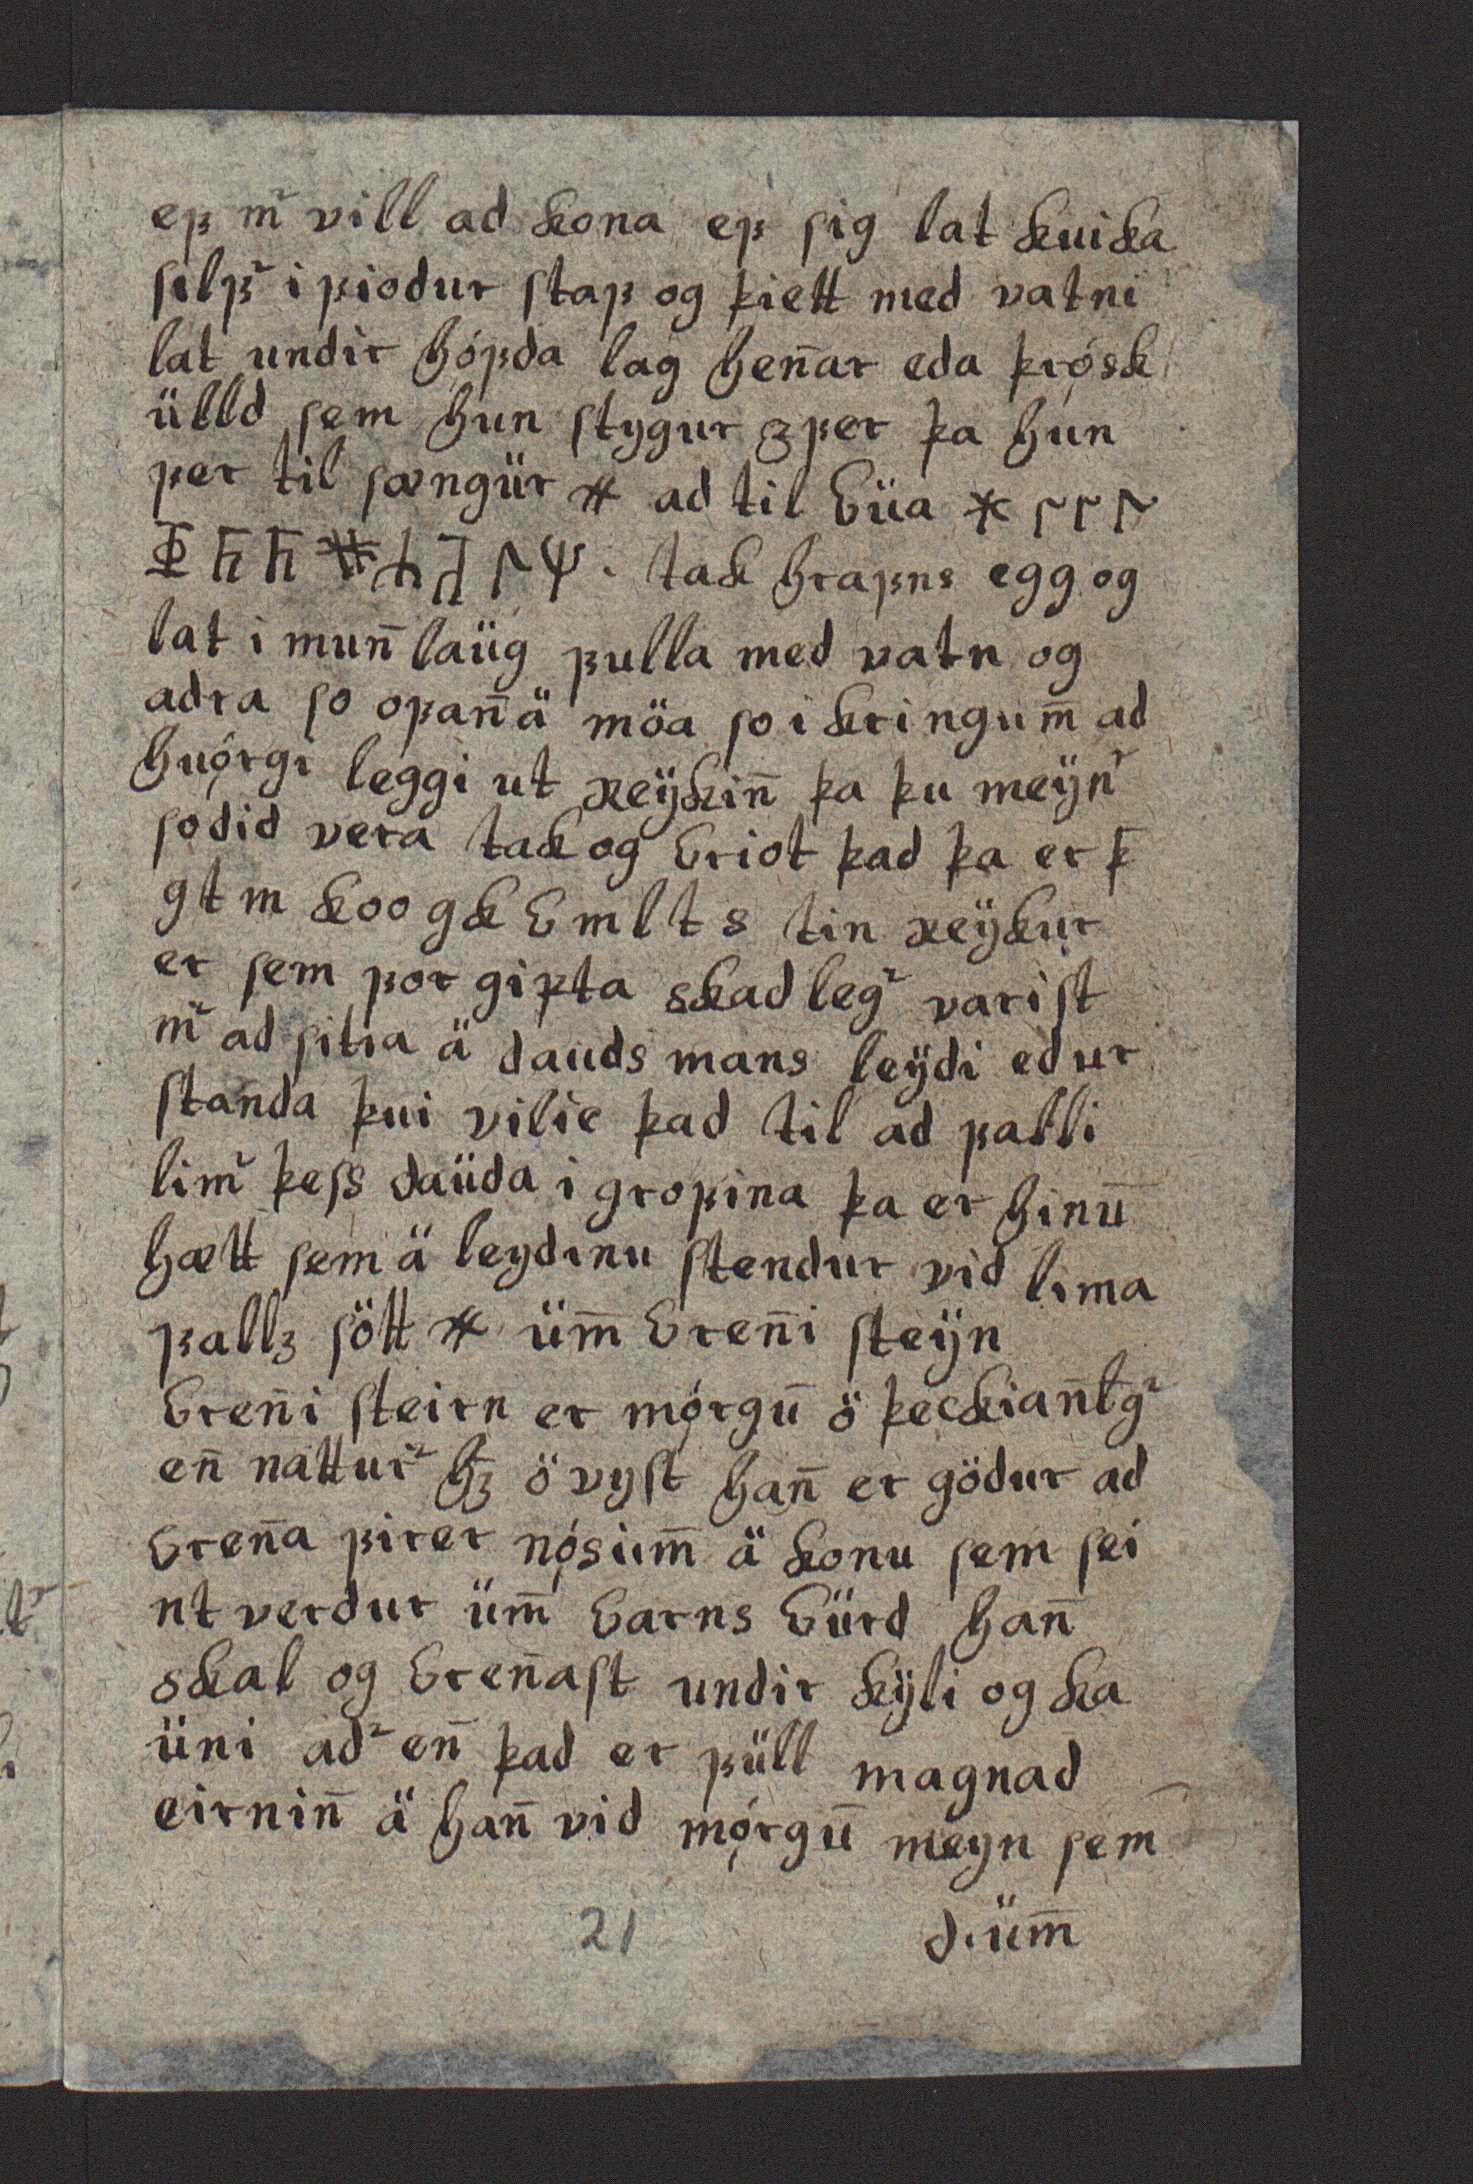 ef mͬ vill ad kona ef sig lat kuika
silfͬ i fiodur staf og þiett med vatni
lat undir hǫ́fda lag hen̄ar eda þrǫ́sk
ülld sem hun stygur yfer þa hun
fer til sængür * ad til büa *
tak hrafns egg og
lat i mun̄laüg fulla med vatn og
adra so ofan̄ ä möa so i kringum̄ ad
huǫ́rgi leggi ut reÿkin̄ þa þu meÿnͬ
sodid vera tak og briot þad þa er þ̄
g t m k o o g k b m l t s tin reÿkur
er sem for gifta skadlegͬ varist
mͬ ad sitia ä dauds mans leÿdi edur
standa þui vilie þad til ad falli
limͬ þess daüda i grofina þa er hinū
hætt sem ä leydinu stendur vid lima
fallz sött * üm̄ bren̄i steÿn
bren̄i steirn er mǫ́rgū ö þeckian̄lgͬ
en̄ natturͬ hz̄ ö vyst han̄ er gödur ad
bren̄a firer nǫ́sum̄ ä konu sem sei
nt verdur üm̄ barns bürd han̄
skal og bren̄ast undir kÿli og ka
üni adͬ en̄ þad er füll magnad
eirnin̄ ä han̄ vid mǫ́rgū meyn sem̄
21 d.üm̄